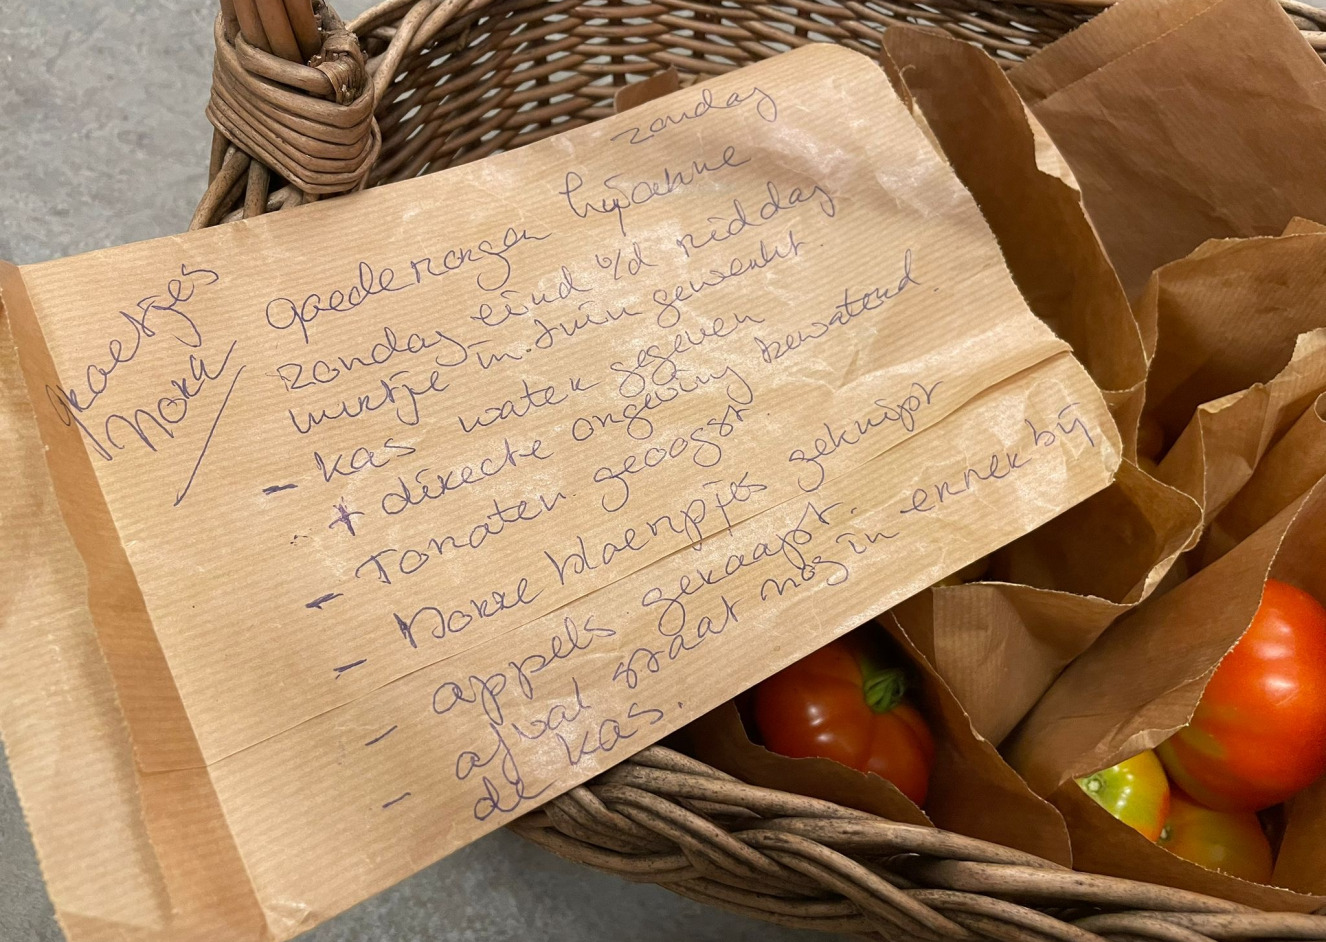 zondag
goedemorgen
zondag eind v/d middag
uurtje in tuin gewerkt.
- kas water gegeven
+ directe omgeving bewaterd.
- Tomaten geoogst
- Dorre bloempjes geknipt
- appels geraapt.
- afval staat nog in emmer bij
de kas.
groetjes
Nora